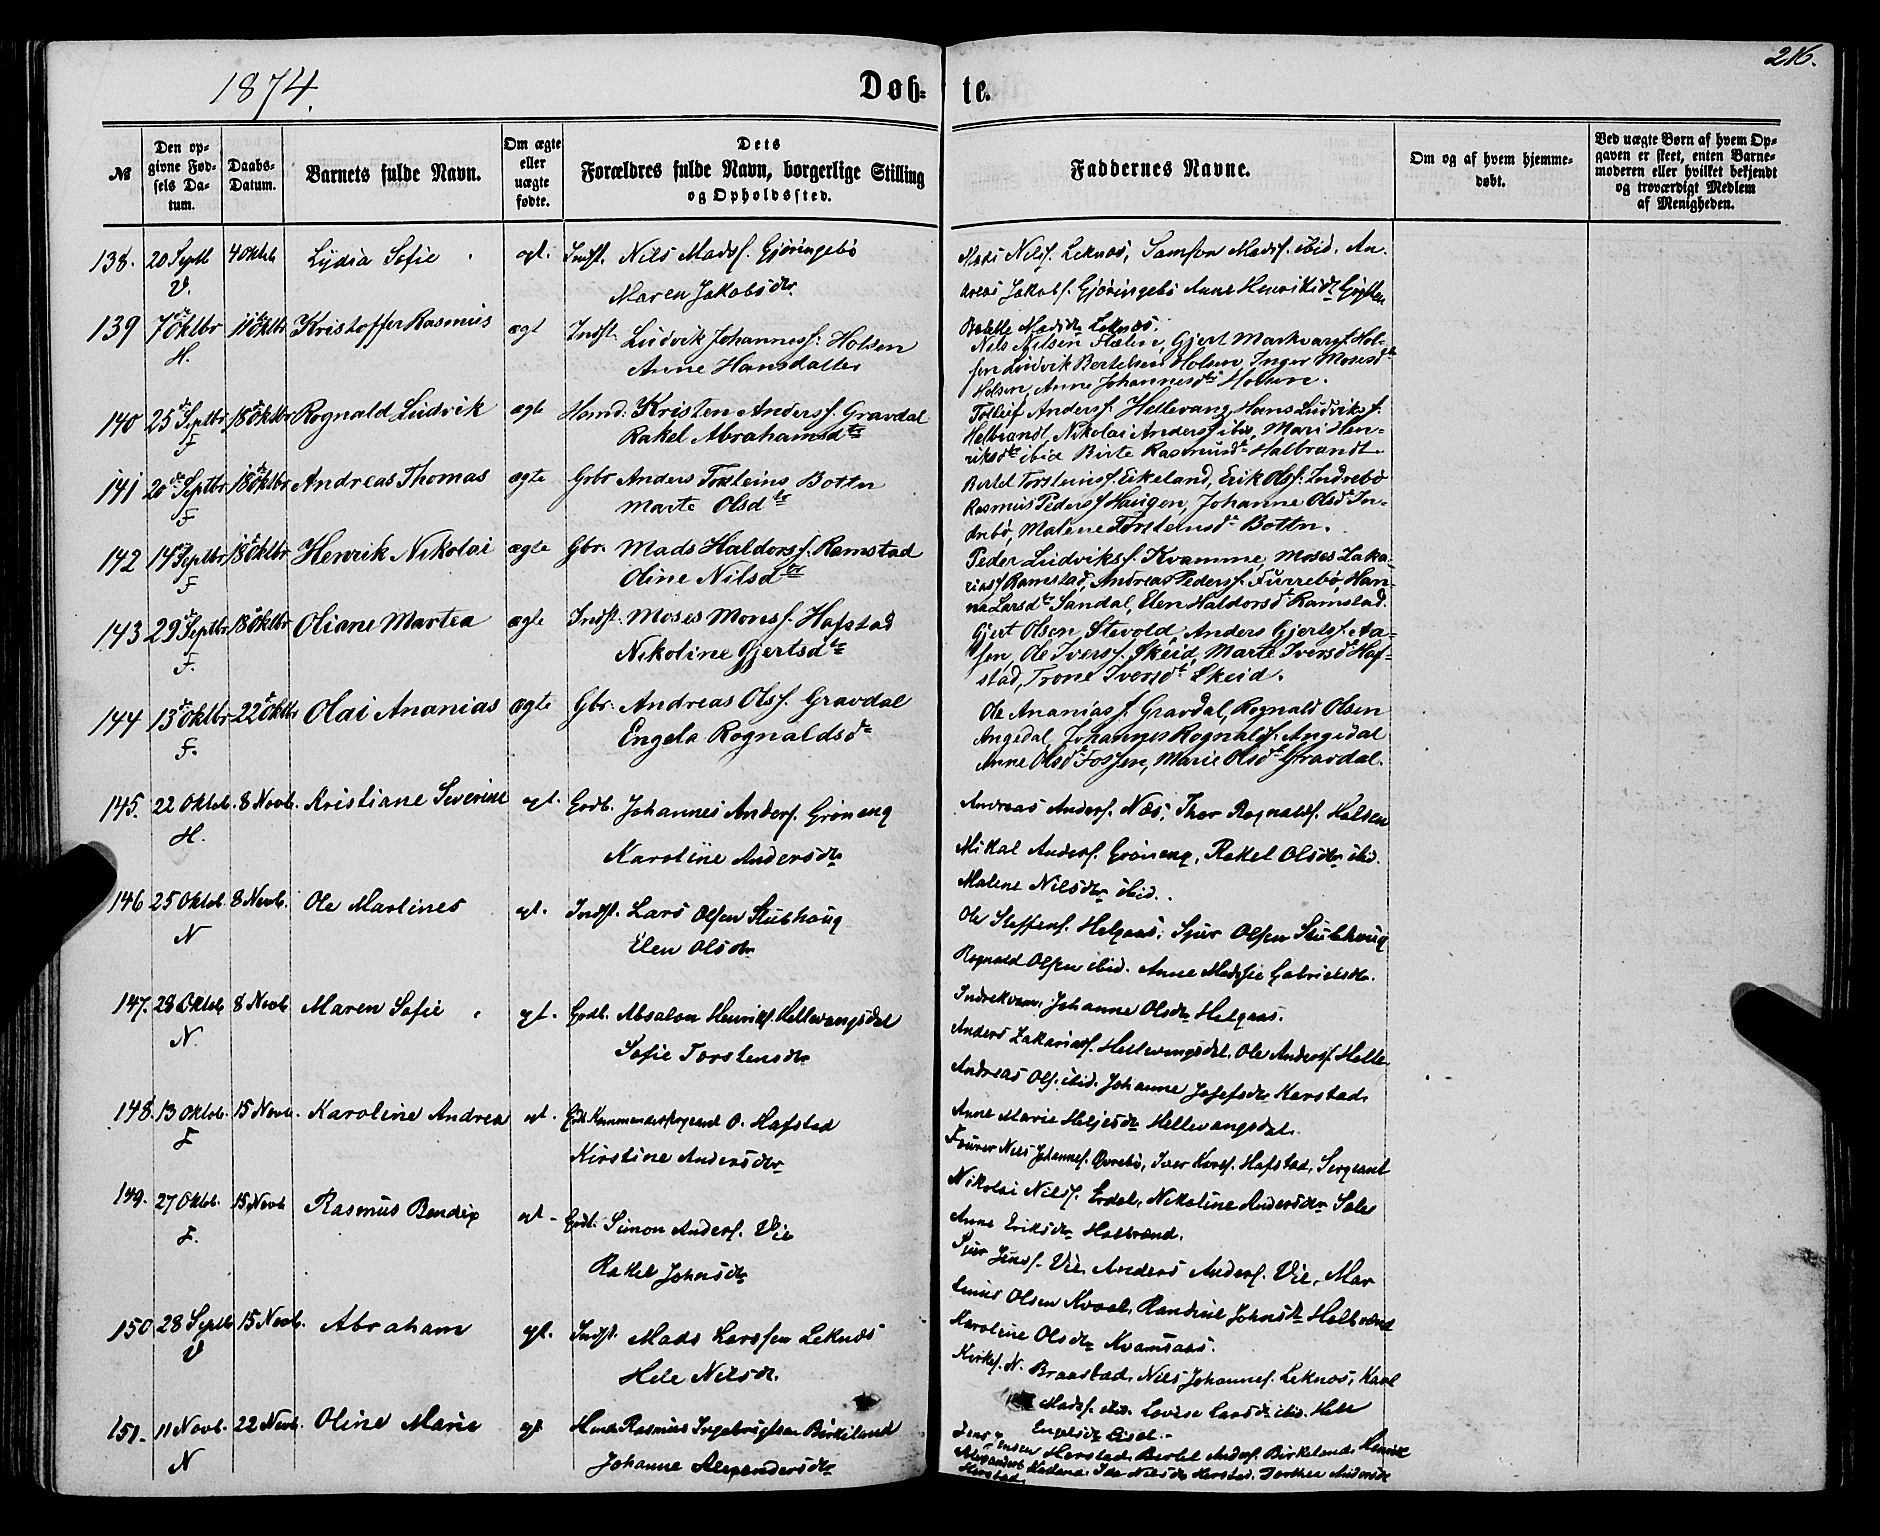 1874.
Døb-
te.
216.
No
Den op-
givne Fød-
sels Da-
tum.
Daabs-
Datum.
Barnets fulde Navn.
Om ægte
eller
uægte
fødte.
Dets
Forældres fulde Navn, borgerlige Stilling
og Opholdssted.
Faddernes Navne.
Om og af hvem hjemme-
døbt.
Ved uægte Børn af hvem Op-
gaven er skeet, enten Barne-
moderen eller hvilket bekjendt
og troværdigt Medlem
af Menigheden.
138. 20 Septb 4 Oktob Lydia Sofie . egt. Indst. Nils Madsf. Gjöringebö
V. Maren Jakobsdtr
Mads Nilsf. Leknæs, Samson Madsf. ibid. An-
dreas Jakobsf. Gjöringebö Anne Henriksdtr
Madsdtr Leknæs.
139 7de Oktbr 11te Oktbr Kristoffer Rasmus ægt Indst. Ludvik Johannesf: Holsen
H. Anne Hansdatter
Nils Nilsen Gjert Markvarsf Hol-
sen Ludvik Bertelsen Holsen, Inger Mosesdtr
Holsen, Anne Johannesdtr Holsen.
140 25de Septbr 18de Oktbr Rognald Ludvik ægte Hmd: Kristen Andersf. Gravdal
F Rakel Abrahamsdtr
Tolleif Andersf. Hellevang Hans Ludviksf.
Helbrandt, Nikolai Andersf ibid, Mari Hen-
riksdtr ibid Birte Rasmusdtr Halbrandt
141 20de Septbr 18de Oktbr Andreas Thomas ægte Grbr Anders Torsteins Bottn
F Marte Olsdtr
Bertel Torsteinsf. Eikeland, Erik Olsf. Indrebö
Rasmus Pedersf Haugen, Johanne Olsdt In-
drebö, Malene Torsteinsdtr Bottn.
142 14de Septbr 18de Oktbr Henrik Nikolai ægte Gbr. Mads Haldorsf. Ramstad
F Oline Nilsdtr
Peder Ludviksf. Kvamme, Moses Zaka-
riasf Ramstad, Andreas Pedersf. Furrebö, Han-
na Larsdtr Sandal, Elen Haldorsdtr Ramstad.
143 29de Septbr 18de Oktbr Oliane Martea ægte Indst. Moses Monsf. Hafstad
F. Nikoline Gjertsdtr
Gjert Olsen Stevold, Anders Gjertsf. Aa-
sen, Ole Iversf. Skeid, Marte Iversdtr Haf-
stad, Trone Iversdtr Skeid.
144 13de Oktbr 22de Oktbr Olai Ananias ægte Gbr: Andreas Olsf. Gravdal
F. Engela Rognaldsdtr
Ole Ananiasf. Gravdal, Rognald Olsen
Angedal, Johannes Rognaldsf. Angedal
Anne Olsdtr Fossen, Marie Olsdtr Gravdal.
145. 22 Oktob. 8 Novb. Kristiane Severine egt. Grdb. Johannes Andersf. Gröneng
H. Karoline Andersdtr
Andreas Andersf. Næs, Thor Rognaldsf. Holsen
Mikal Andersf. Gröneng, Rakel Olsdtr ibid.
Malene Nilsdtr ibid.
146 25 Oktob. 8 Novb. Ole Martines egt. Indst. Lars Olsen Stubhoug
N Elen Olsdtr
Ole Steffensf. Helgaas, Sjur Olsen Stubhoug
Rognald Olsen ibid. Anne Gabrielsdtr
Indrekvam, Johanne Olsdtr Helgaas.
147. 28 Oktob 8 Novb Maren Sofie . egt. Grdb. Absalon Henriksf. Hellevangsdal
N. Sofie Torstensdtr
Anders Zakariasf. Hellevangsdal, Ole Andersf. Helle
Andreas Olsf. ibid. Johanne Josefsdtr Karstad,
Anne Marie Heljesdtr Hellevangsdal.
148. 13 Oktob. 15 Novb. Karoline Andrea egt. Kommandersergeant O. Hafstad
F Kirstine Andersdtr
Fourer Nils Johannesf. Övrebö, Iver Hafstad, Sergeant
Nikolai Nilsf. Erdal, Nikoline Andersdtr Sole
Anne Eriksdtr Halbrend.
149. 27 Oktob. 15 Novb Rasmus Bendix egt. Grdb. Simon Andersf. Vie
F. Rakel Johnsdtr
Sjur Jensf. Vie. Anders Andersf. Vie, Mar-
tinus Olsen Kvaal, Randine Johnsdtr Halbrend
Karoline Olsdtr Kvamsaas.
150 28 Septb 15 Novb. Abraham egt. Indst. Mads Larssen Leknæs
V Hele Nilsdtr.
Kirkes. N. Braastad, Nils Johannesf. Leknæs, Karl
Madsf. ibid. Lovise Larsdtr ibid. Hele
Engelsdtr
151. 11 Novb. 22 Novb. Oline Marie egt Hmd Rasmus Ingebrigtsen Birkeland
N Johanne Alexandersdtr
Jens Jensen Herstad, Bertel Andersf. Birkeland, Henrik
Alexandersf. Ida Nilsdtr Herstad, Dorthea Andersdtr
Herstad